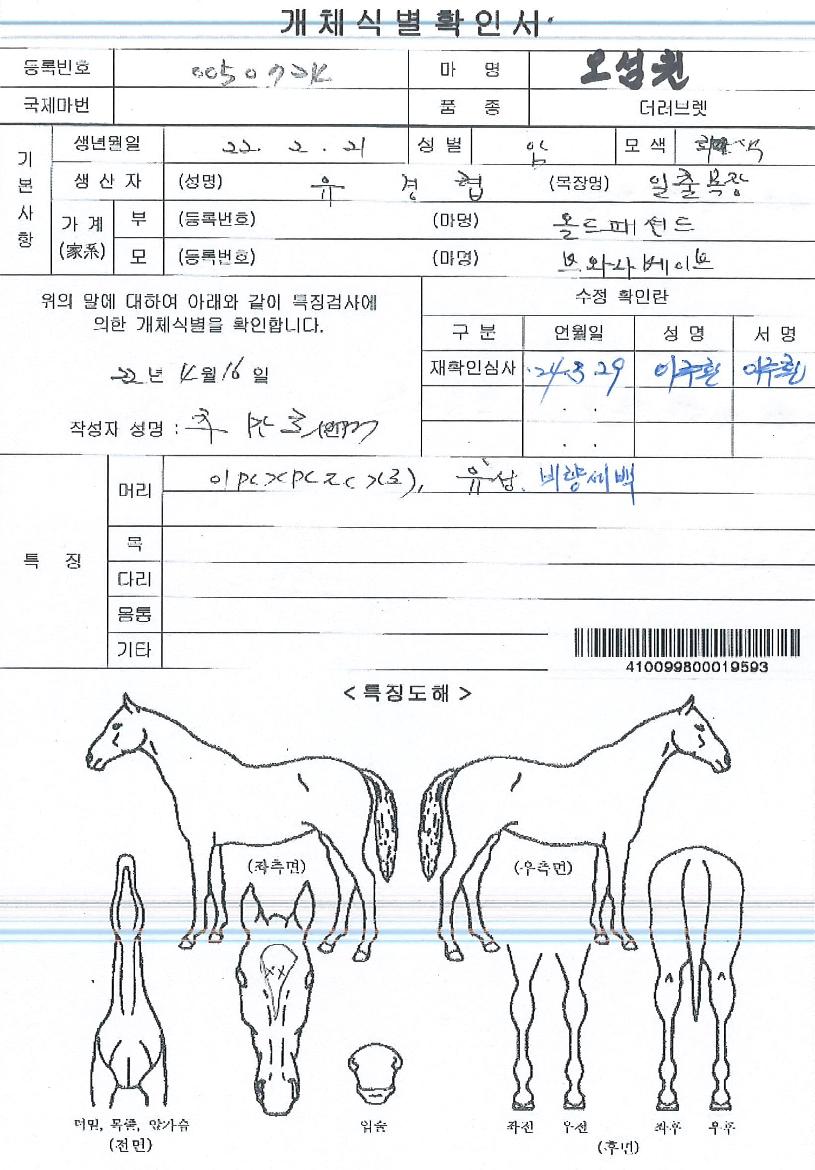 개체식별확인서
등록번호 0050772 마 명 오섬원
국제마번 품 종 더러브렛
기본사항 생년월일 22. 2. 21 성별 암 모색
생산자 (성명) 유 경 협 (목장명) 일출목장
가계 (家系) 부 (등록번호) (마명) 올드패션드
모 (등록번호) (마명)
위의 말에 대하여 아래와 같이 특징검사에
의한 개체식별을 확인합니다.
22년 4월 16일
작성자 성명 :
수정 확인란
구분 언월일 성명 서명
재확인심사 '24.3.29 이주환 이주환
. .
. .
특 징
머리 유성, 비량세백
목
다리
몸통
기타
410099800019593
< 특징도해 >
(좌측면) (우측면)
더밑, 목줄, 앞가슴
(전면)
입술
좌전 우전 좌후 우후
(후면)